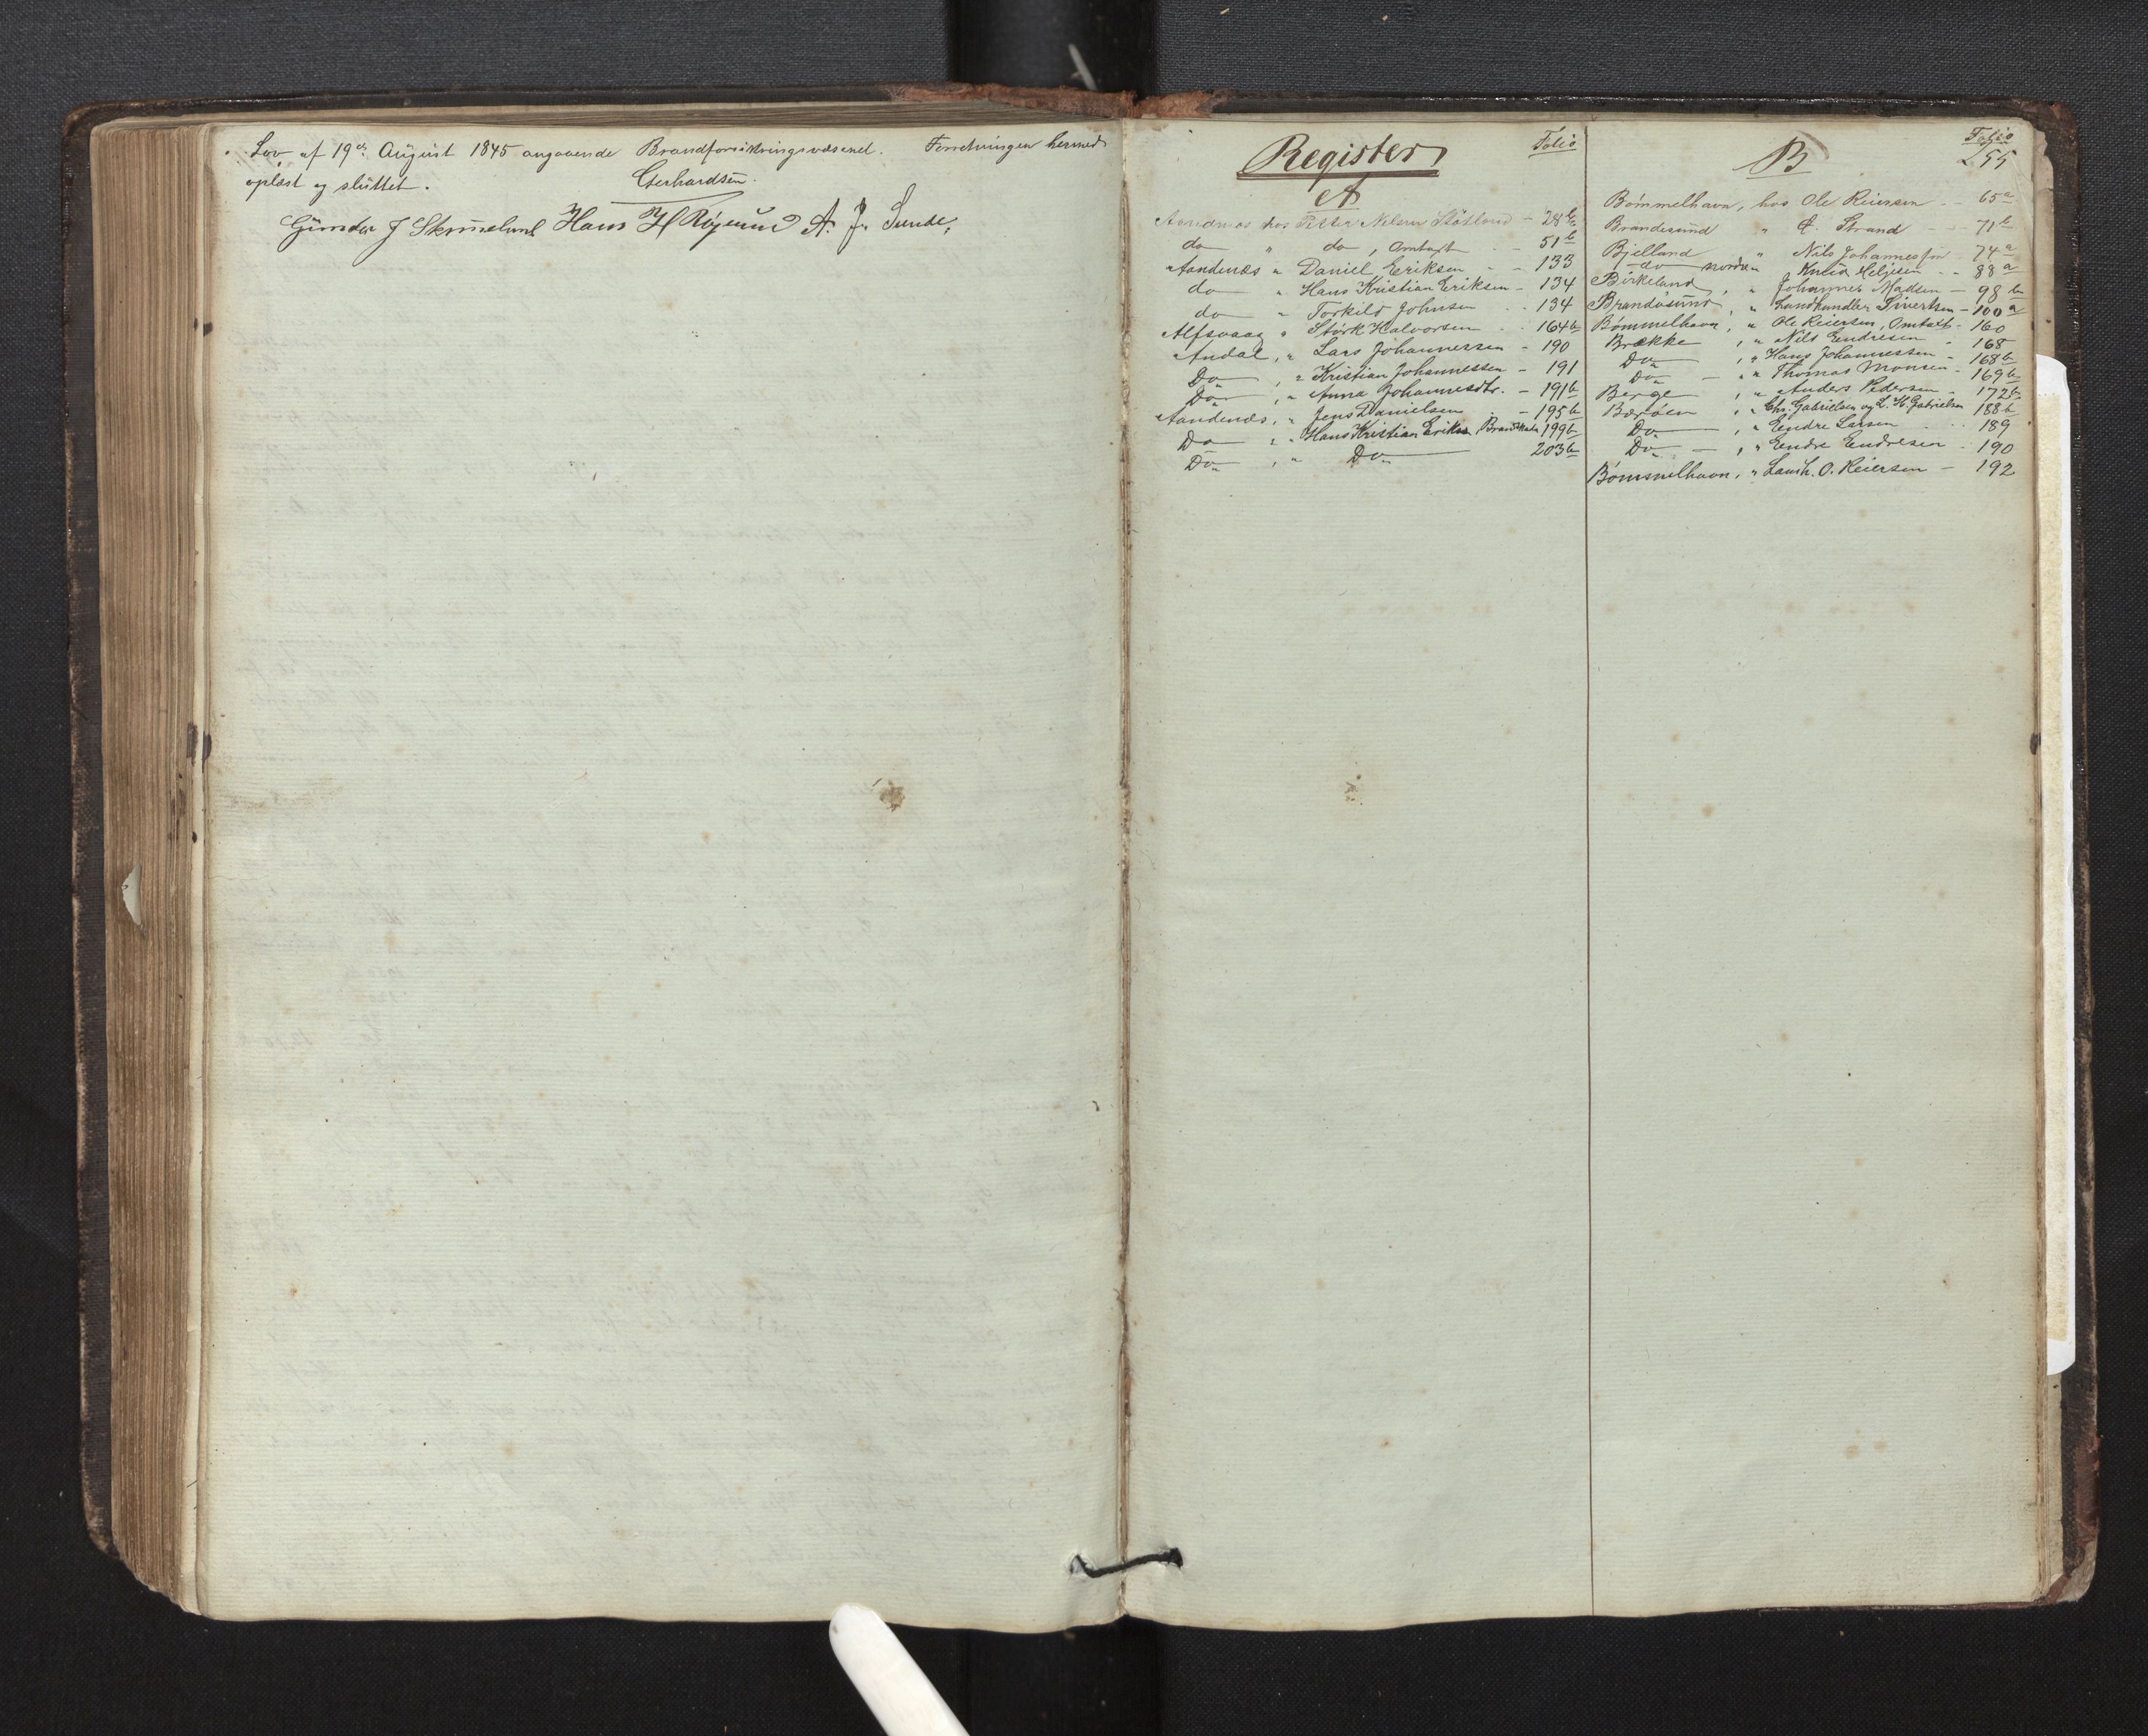 Lov af 19de August 1845 angaaende Brandforsikringsvæsenet. Forretningen hermed
oplæst og sluttet.
Gerhardsen.
Gunder J Hans H Røxsund A. J. Sunde.
Register
Folio
A
Aandnæs hos Petter Nelsen - 28b
do " do, Omtaxt - 51b
Aandenæs " Daniel Eriksen - 133
do " Hans Kristian Eriksen - 134
do " Torkild Johnsen - 134
Alfsvaag " Størk Halvorsen - 164b
Andal, " Lars Johannessen - 190
Do , " Kristian Johannessen - 191
Do , " Anna Johannesdtr. - 191b
Aandenæs, " Jens Danielsen - 195b
Do , " Hans Kristian Eriksen Brandskade 199b
Do , " Do 203b
B
Folio
255
Bömmelhavn, hos Ole Reiersen - 65a
Brandesund " Strand - 71b
Bjelland " Nils Johannesson 74a
do nordre " Knud Helgesen - 88a
Birkeland, " Johannes Madsen - 98b
Brandasund, " Landhandler Sivertsen - 100a
Bömmelhavn, " Ole Reiersen, Omtaxt - 160
Brække , " Nils Endresen - 168
Do , " Hans Johannessen - 168b
Do - " Thomas Monsen - 169b
Berge , " Anders Pedersen - 172b
Børøen , " Chr. Gabrielsen og L. H. Gabrielsen 188b
Do , " Endre Larsen 189
Do - , " Endre Endresen - 190
Bömmelhavn, " Landh. O. Reiersen - 192